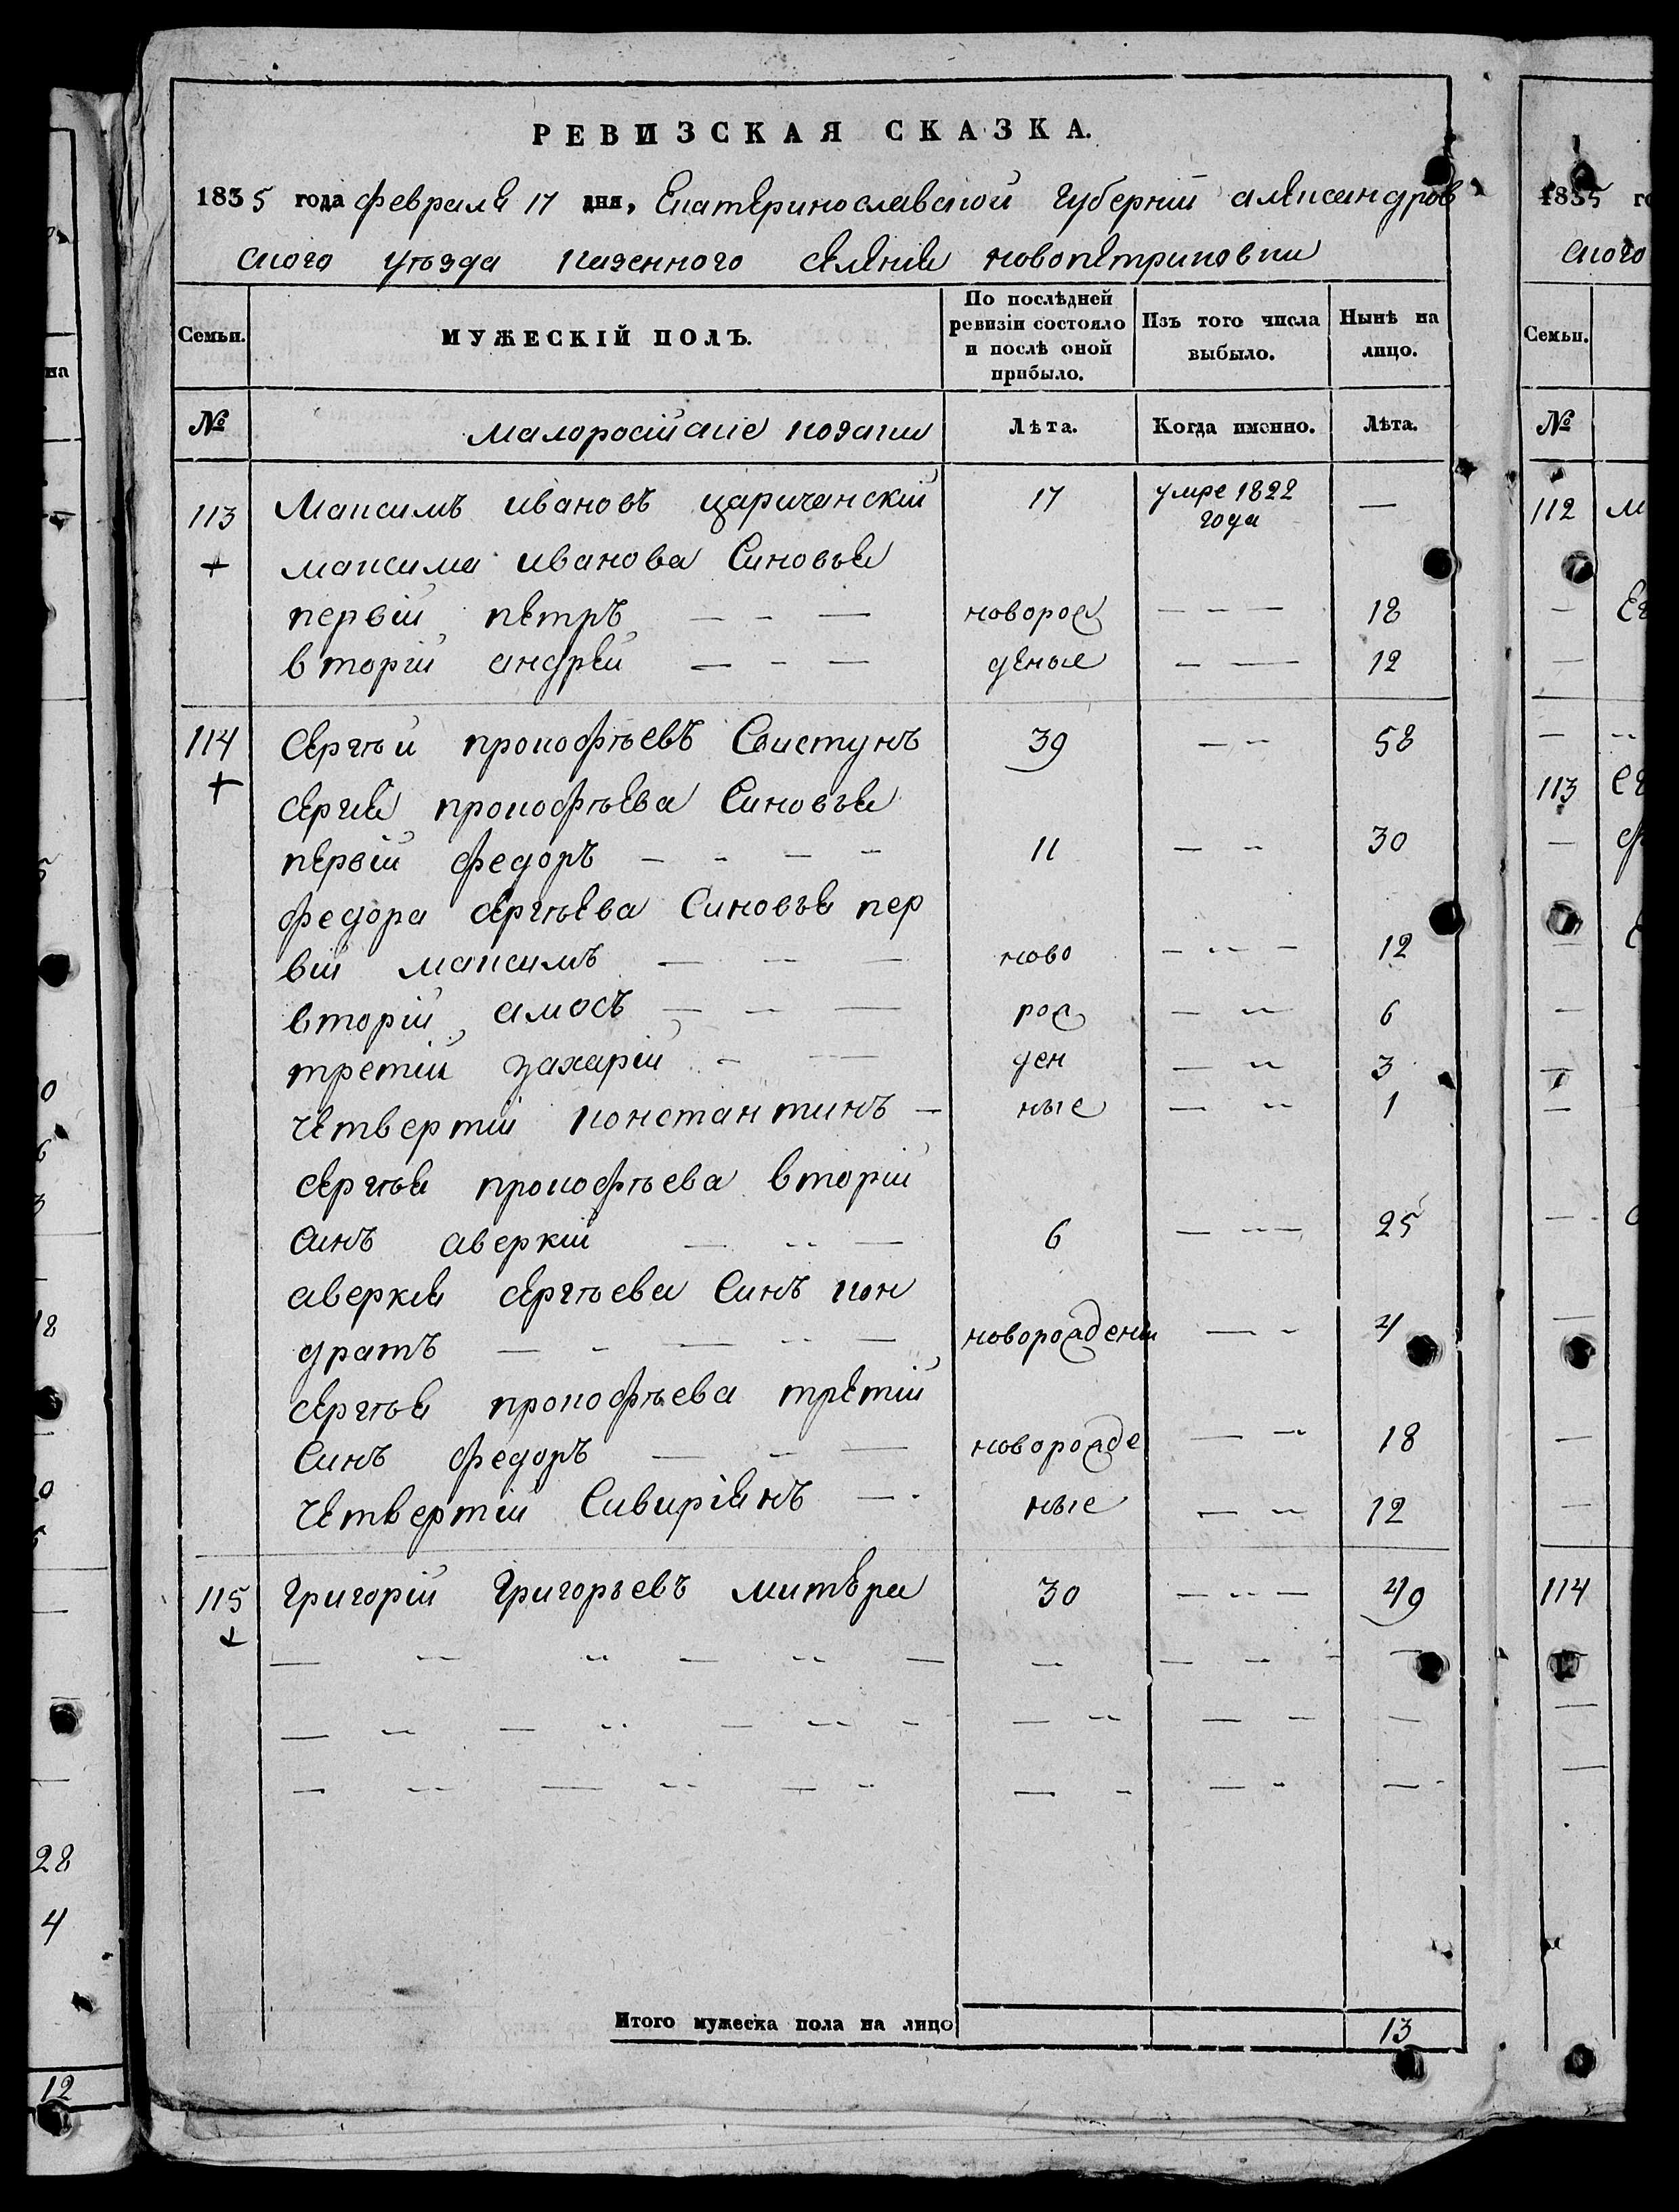 РЕВИЗСКАЯ СКАЗКА.
1835 года февраля 17 дня, Екатеринославской губерніи александров
ского уѣзда казенного селенія новопетриковки
Семьи. МУЖЕСКІЙ ПОЛЪ. По послѣдней ревизіи состояло и послѣ оной прибыло. Изъ того числа выбыло. Нынѣ на лицо.
№ малоросійскіе козаки Лѣта. Когда именно. Лѣта.
113 Максимъ ивановъ царичанскій 17 умре 1822 года —
+ максима иванова синовья
первій петръ — - — новорож — - — 18
вторій андрей — - — деные - — 12
114 Сергѣй прокофѣевъ Свистунъ 39 — - 58
+ сергия прокофѣева синовья
первій федоръ — - — - 11 — - 30
федора сергѣева синовья пер
вій максимъ — - — ново - - - 12
вторій амосъ — - — рож — - 6
третій захарій - — ден — - 3
четвертій константинъ — ные — - 1
сергѣя прокофѣева вторій
синъ аверкій — - — 6 — - — 25
аверкія сергѣева синъ кон
дратъ — - — - — новорожденй — - 4
сергѣя прокофѣева третій
синъ федоръ — - — новорожде — - 18
четвертій Сивиріянъ — - ные — - 12
115 Григорій Григорьевъ митѣра 30 — - — 49
+
Итого мужеска пола на лицо 13
12
28
4
18
1835 го
ского
Семьи.
№
112 м
113
114